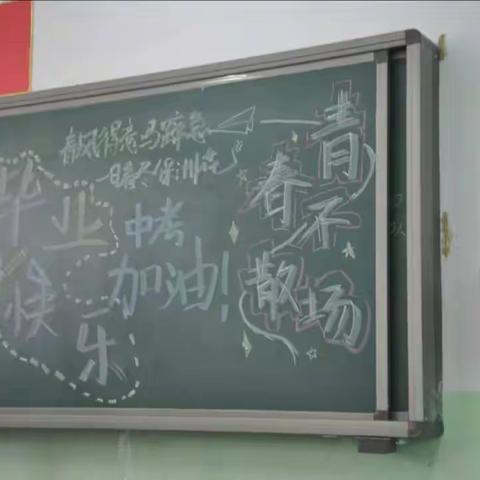 风得意马蹄急
一日看尽花
毕业
快乐
中考
加油!
青春不散场